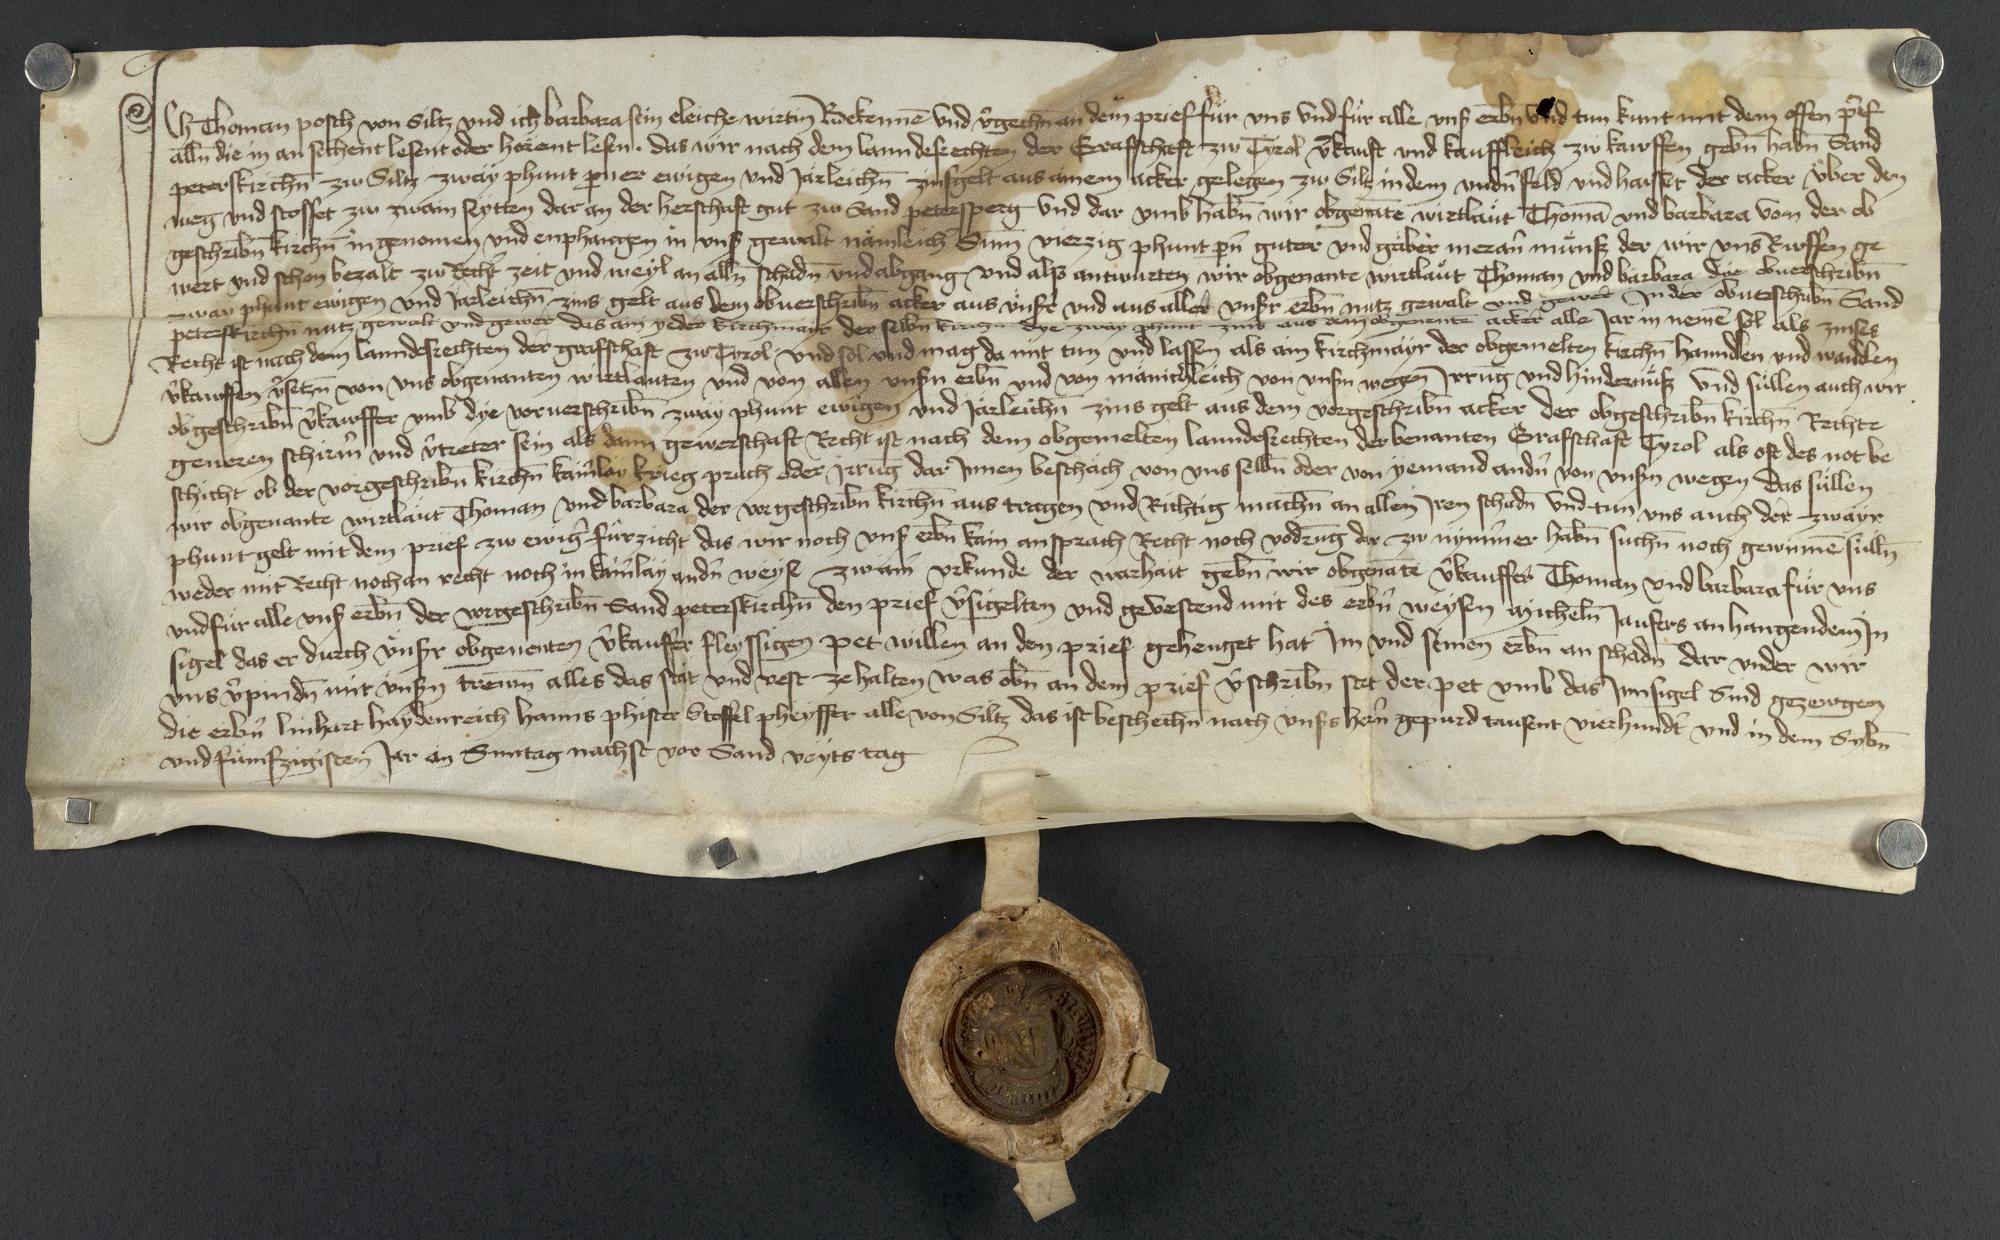 Ich Thoman posch von Siltz vnd ich barbara sein eleiche wirtin Bekennē vnd v̄gechn̄ an dem prief für vns vnd für alle vnß erbn̄ vnd tun kunt mit dem offen p̄ief
alln̄ die in an sechent lesent oder hörent lesen. das wir nach dem lanndesrechten der Grafschaft zw Tyrol v̄kauft vnd kauffleich zw kawffen gebn̄ habn̄ Sand
peterskirchn̄ zw Siltz zway phunt pner ewigen vnd Jarleichn̄ zinsgelt aus ainem acker gelegen zw Siltz in dem vndn̄ feld vnd haisset der acker v̈ber den
weg vnd stosset zw zwain seytten dar an der herschaft gut zw Sand petersperg vnd dar vmb habn̄ wir obgenāte wirtlaüt Thomā vnd barbara von der ob
geschribn̄ kirchn̄ in genomen vnd enphangen in vnß gewalt nämleich Sum̄ vierzig phunt pn̄ guter vnd gäber meran̄ münß der wir vns Rueffen ge
wert vnd schon bezalt zw Recht̄ zeit vnd weyl an alln̄ schadn̄ vnd abgang vnd alß antwurten wir obgenante wirtlaüt Thoman vnd barbara dye obuerschribn̄
zway phunt ewigen vnd Jarleichn̄ zins gelt aus dem obuerschribn̄ acker aus vnsr̄ vnd aus aller vnsr̄ erbn̄ nutz gewalt vnd gewer in der obuerschribn̄ Sand
peterskirchn̄ nutz gewalt vnd gewer das ain yeder kirchmayr der selbn̄ kirchn̄ dye zway phunt zins aus dem obgenente acker alle Jar in nemē sol als zinses
Recht ist nach dem lanndesrechten der grafschaft zw Tyrol vnd sol vnd mag da mit tun vnd lassen als ain kirchmayr der obgemelten kirchn̄ hanndlen vnd wandlen
v̄kawffen v̄setzn̄ von vns obgenanten wirtlauten vnd von allen vnsn̄ erbn̄ vnd von mänickleich von vnsn̄ wegen Jrrūg vnd hindernüß vnd süllen auch wir
obgeschribn̄ v̄kawffer vmb dye voruerschribn̄ zway phunt ewigen vnd Jarleichn̄ zins gelt aus dem vorgeschribn̄ acker der obgeschribn̄ kirchn̄ Rechte
geweren schirm̄ vnd v̄treter sein als dann gewerschaft Recht ist nach dem obgemelten lanndesrechten der benanten Grafschaft Tyrol als oft des not be
schicht ob der vorgeschribn̄ kirchn̄ kain̄lay krieg pruch oder Jrrūg dar Jnnen beschäch von vns selbn̄ oder von yemand andn̄ von vnsn̄ wegen das süllen
wir obgenante wirtläut Thoman vnd barbara der vorgeschribn̄ kirchn̄ aus tragen vnd Richtig machn̄ an allen Jren schadn̄ vnd tun vns auch der zwayr
phunt gelt mit dem prief zw ewiḡ fürzicht das wir noch vnß erbn̄ kain ansprach Recht noch vodrūg dar zw nym̄mer habn̄ suchn̄ noch gewinnē sülln̄
weder mit Recht noch an recht noch in kain̄lay andn̄ weyse zwaīn vrkunde der warhait gebn̄ wir obgenāte v̄kauffer Thoman vnd barbara für vns
vnd für alle vnß erbn̄ der vorgeschribn̄ Sand peterskirchn̄ den prief v̄sigelten vnd gevestend mit des erbn̄ weysen Micheln̄ Jaufers an hangendem Jn
sigel das er durch vnsr̄ obgenenten v̄kaufer fleyssigen pet willen an den prief gehenget hat im vnd seinen erbn̄ an schadn̄ dar vnder wir
vns v̄pindn̄ mit vnsn̄ trewn̄ alles das stät vnd vest ze halten was obn̄ an dem prief v̄schribn̄ stet der pet vmb das Jnnsigel Sind gezewgen
die erbn̄ linhart haydenreich hanns phister Stoffel pheyffer alle von Siltz das ist beschechn̄ nach vnsrs hern̄ gepurd tausent vierhundt̄ vnd in dem Sybn̄
vnd fünfzigisten Jar an Suntag nachst vor Sand veyts tag